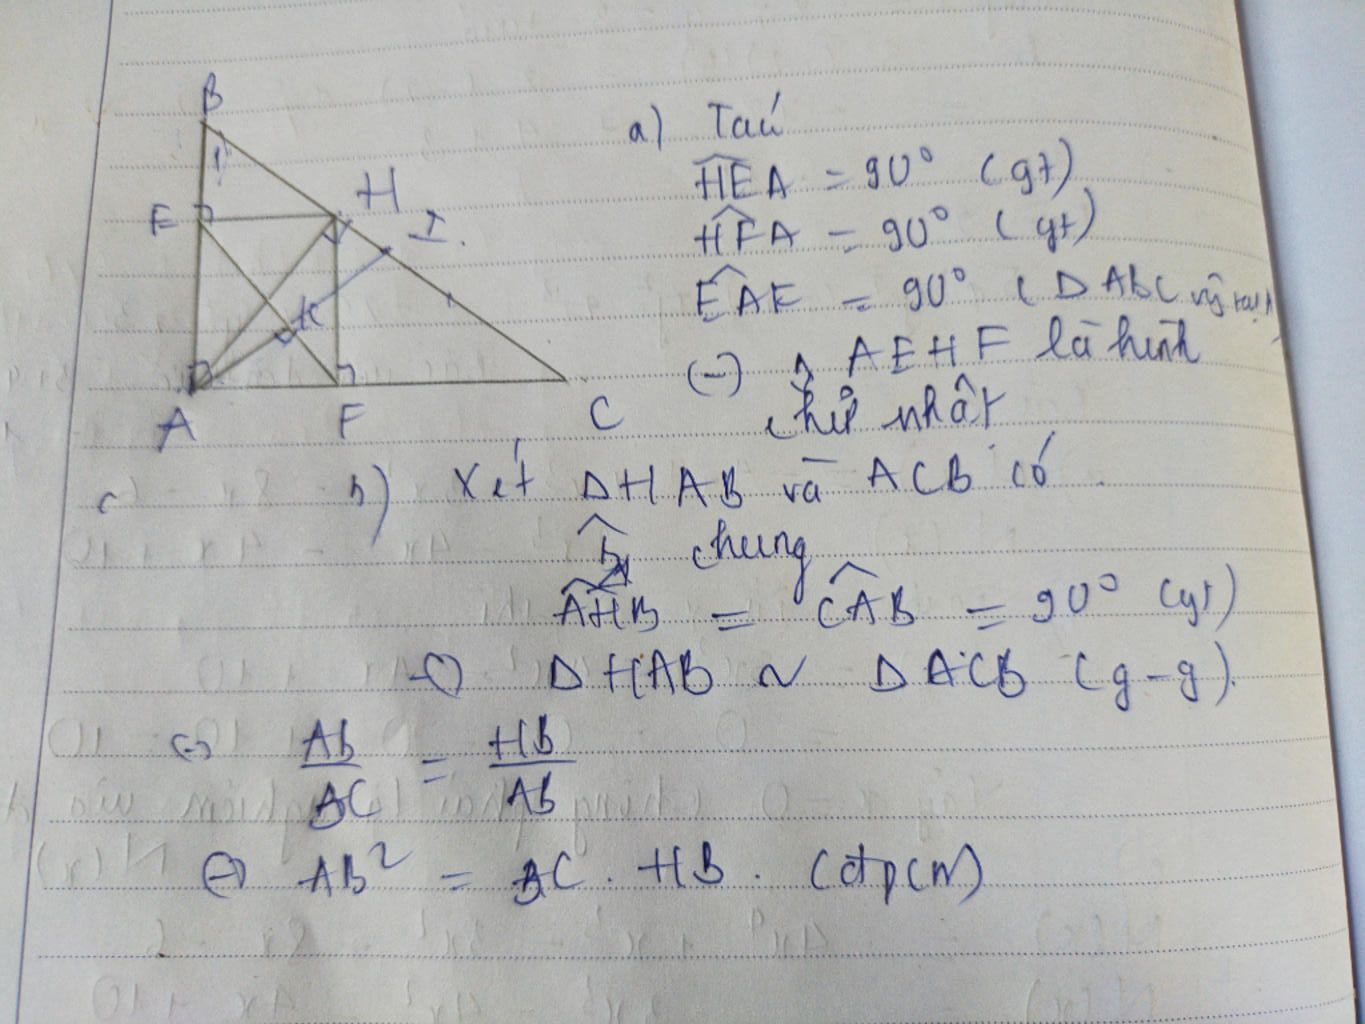 B
1
E
H
I.
K
A
F
C
a) Tacó
HEA = 90° (gt)
HFA = 90° (gt)
EAF = 90° ( Δ ABC
AEHF là hình
chữ nhật
b) Xét ΔHAB và ACB có
B chung
AHB = CAB = 90° (gt)
ΔHAB ~ ΔACB (g-g).
AB/BC = HB/AB
AB² = BC . HB . (đpcm)